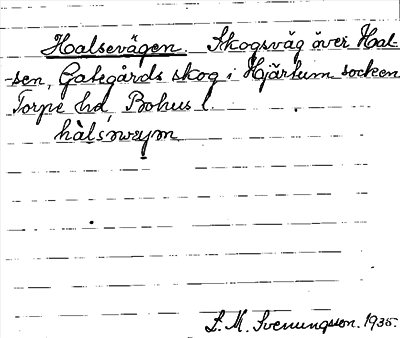 Halsevägen. Skogsväg över Hal-
-sen, Gategårds skog i Hjärtum socken
Torpe hd, Bohus l.
S. M. Svenungsson. 1935.